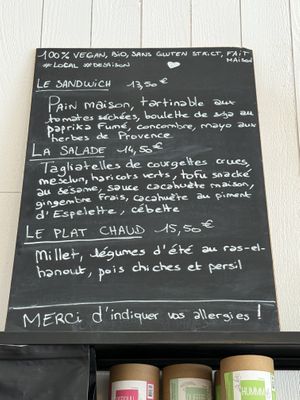 100% VEGAN, BIO, SANS GLUTEN STRICT, FAIT
MAISON
#LOCAL #DESAISON
LE SANDWICH 13,50€
PAIN MAISON, tartinable aux
tomates séchées, boulette de soja au
paprika Fumé, concombre, mayo aux
herbes de Provence
LA SALADE 14,50€
Tagliatelles de courgettes crues,
mesclun, haricots verts, tofu snacké
au sésame, sauce cacahuète maison,
gingembre frais, cacahuète au piment
d'Espelette, cébette
LE PLAT CHAUD 15,50€
Millet, légumes d'été au ras-el-
hanout, pois chiches et persil
MERCi d'indiquer vos allergies !
HUMMM